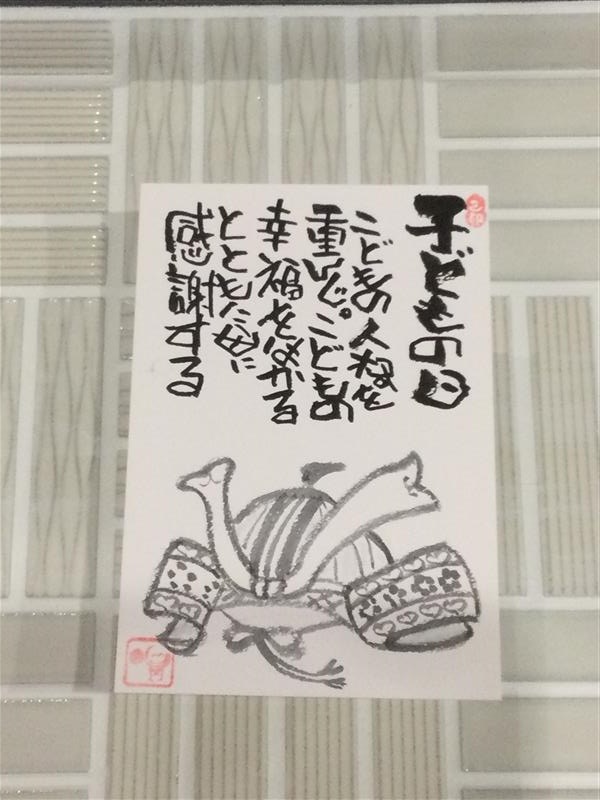 子どもの日
こどもの人格を
重んじ。こどもの
幸福をはかる
とともに母に
感謝する